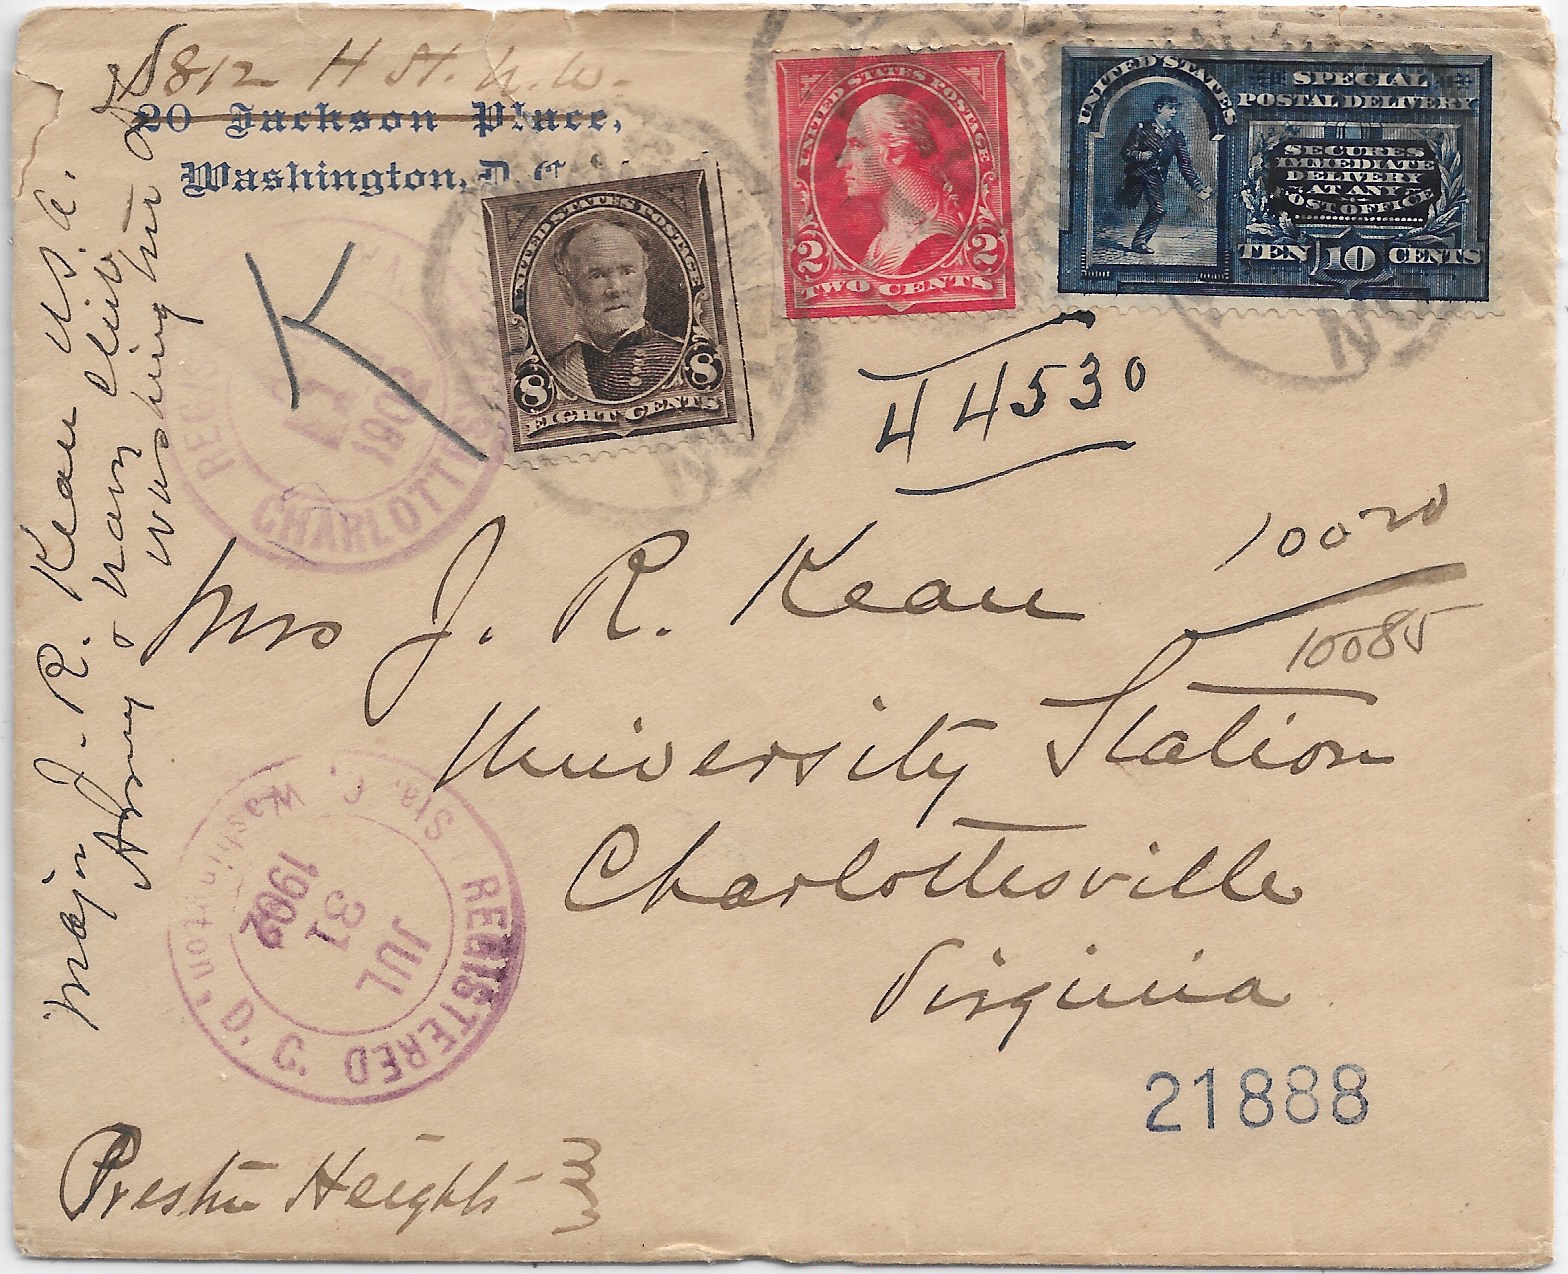 812 H St. N.W.
20 Jackson Place,
Washington, D.C.
UNITED STATES POSTAGE
8 8
EIGHT CENTS
UNITED STATES POSTAGE
2 2
TWO CENTS
UNITED STATES
SPECIAL
POSTAL DELIVERY
SECURES
IMMEDIATE
DELIVERY
AT ANY
POST OFFICE
TEN 10 CENTS
K
44530
Major J. R. Kean U.S.A.
Army & Navy Club
Washington D
CHARLOTTES
1902
Mrs J. R. Kean
University Station
Charlottesville
Virginia
10020
10085
REGISTERED
Sta. C. Washington, D. C.
JUL
31
1902
21888
Preston Heights